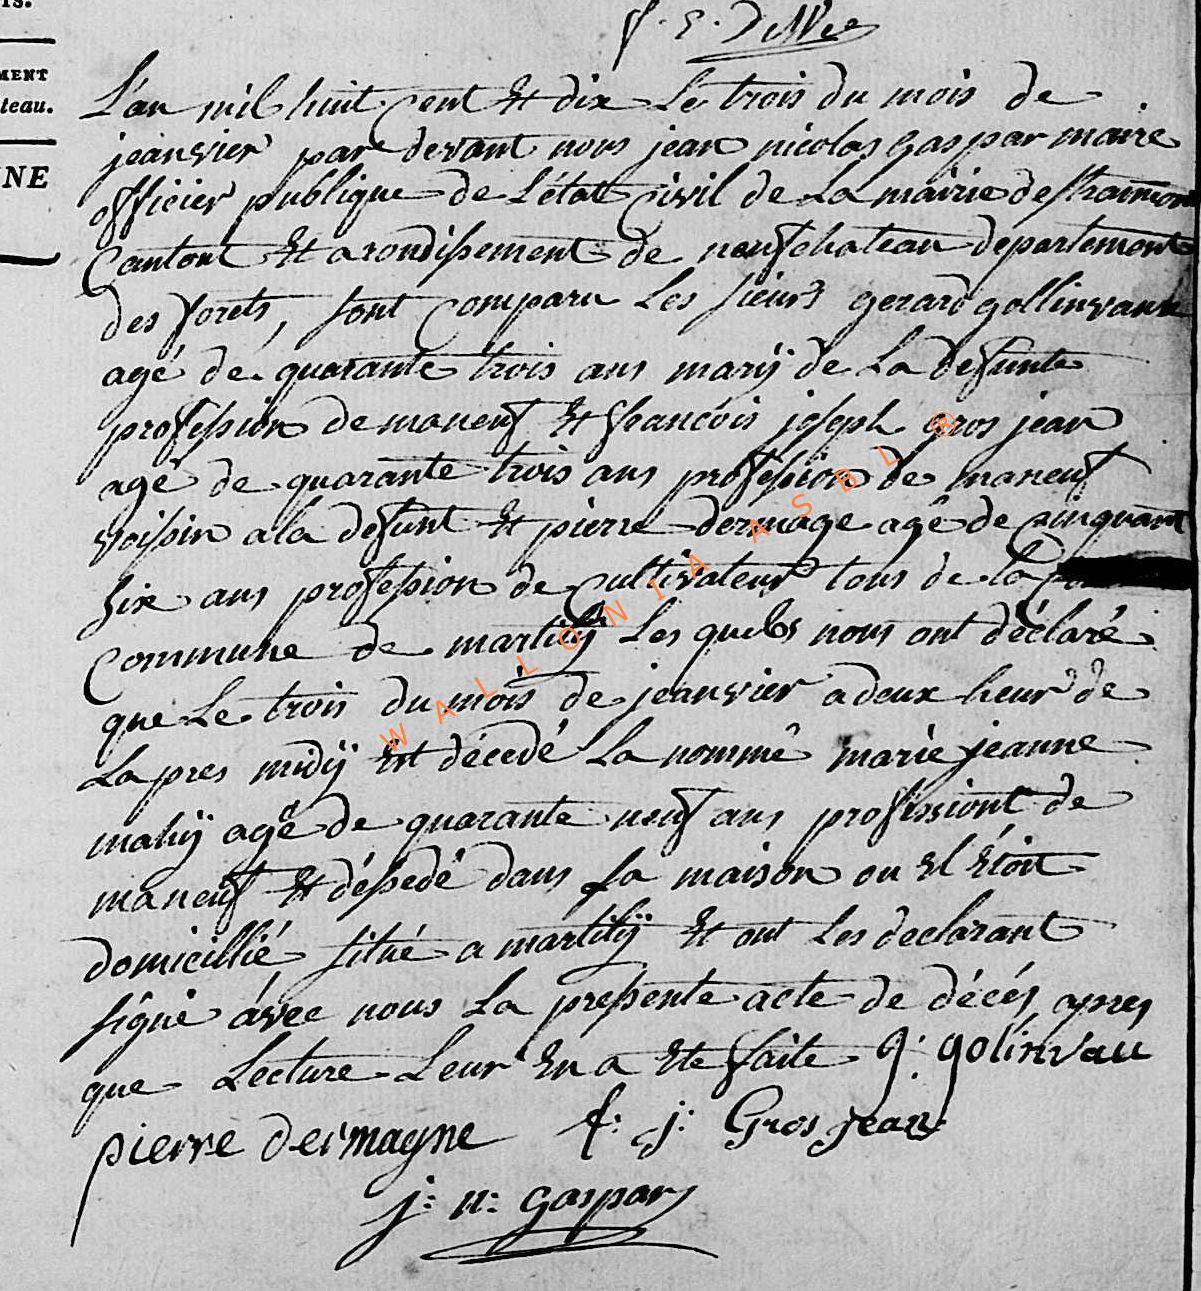 is.
MENT
teau.
NE
L'an mil huit cent et dix le trois du mois de
jeanvier par devant nous jean nicolas gaspar maire
officier publique de l'état civil de la mairie de straimon
cantont et arondissement de neufchateau departement
des forets, sont comparu les sieurs gerard gollinvaux
agé de quarante trois ans marÿ de la defunte
profession de maneuf et francois joseph gros jean
agé de quarante trois ans profession de maneuf
voissin a la defunt et pierre dermage agé de cinquant
six ans profession de cultivateur tous de la
commune de martillÿ les quels nous ont déclaré
que le trois du mois de jeanvier a deux heur de
la pres midÿ est décedé la nommé marie jeanne
mahÿ agé de quarante neuf ans professiont de
maneuf et déssedé dans sa maison ou el étoit
domicillié, situé a martillÿ et ont les declarant
signé avec nous la pressente acte de décés apres
que lecture leur en a ete faite g: golinvau
pierre dermagne f: j: Gros jean
j: n: gaspar
WALLONIA ASBL ®